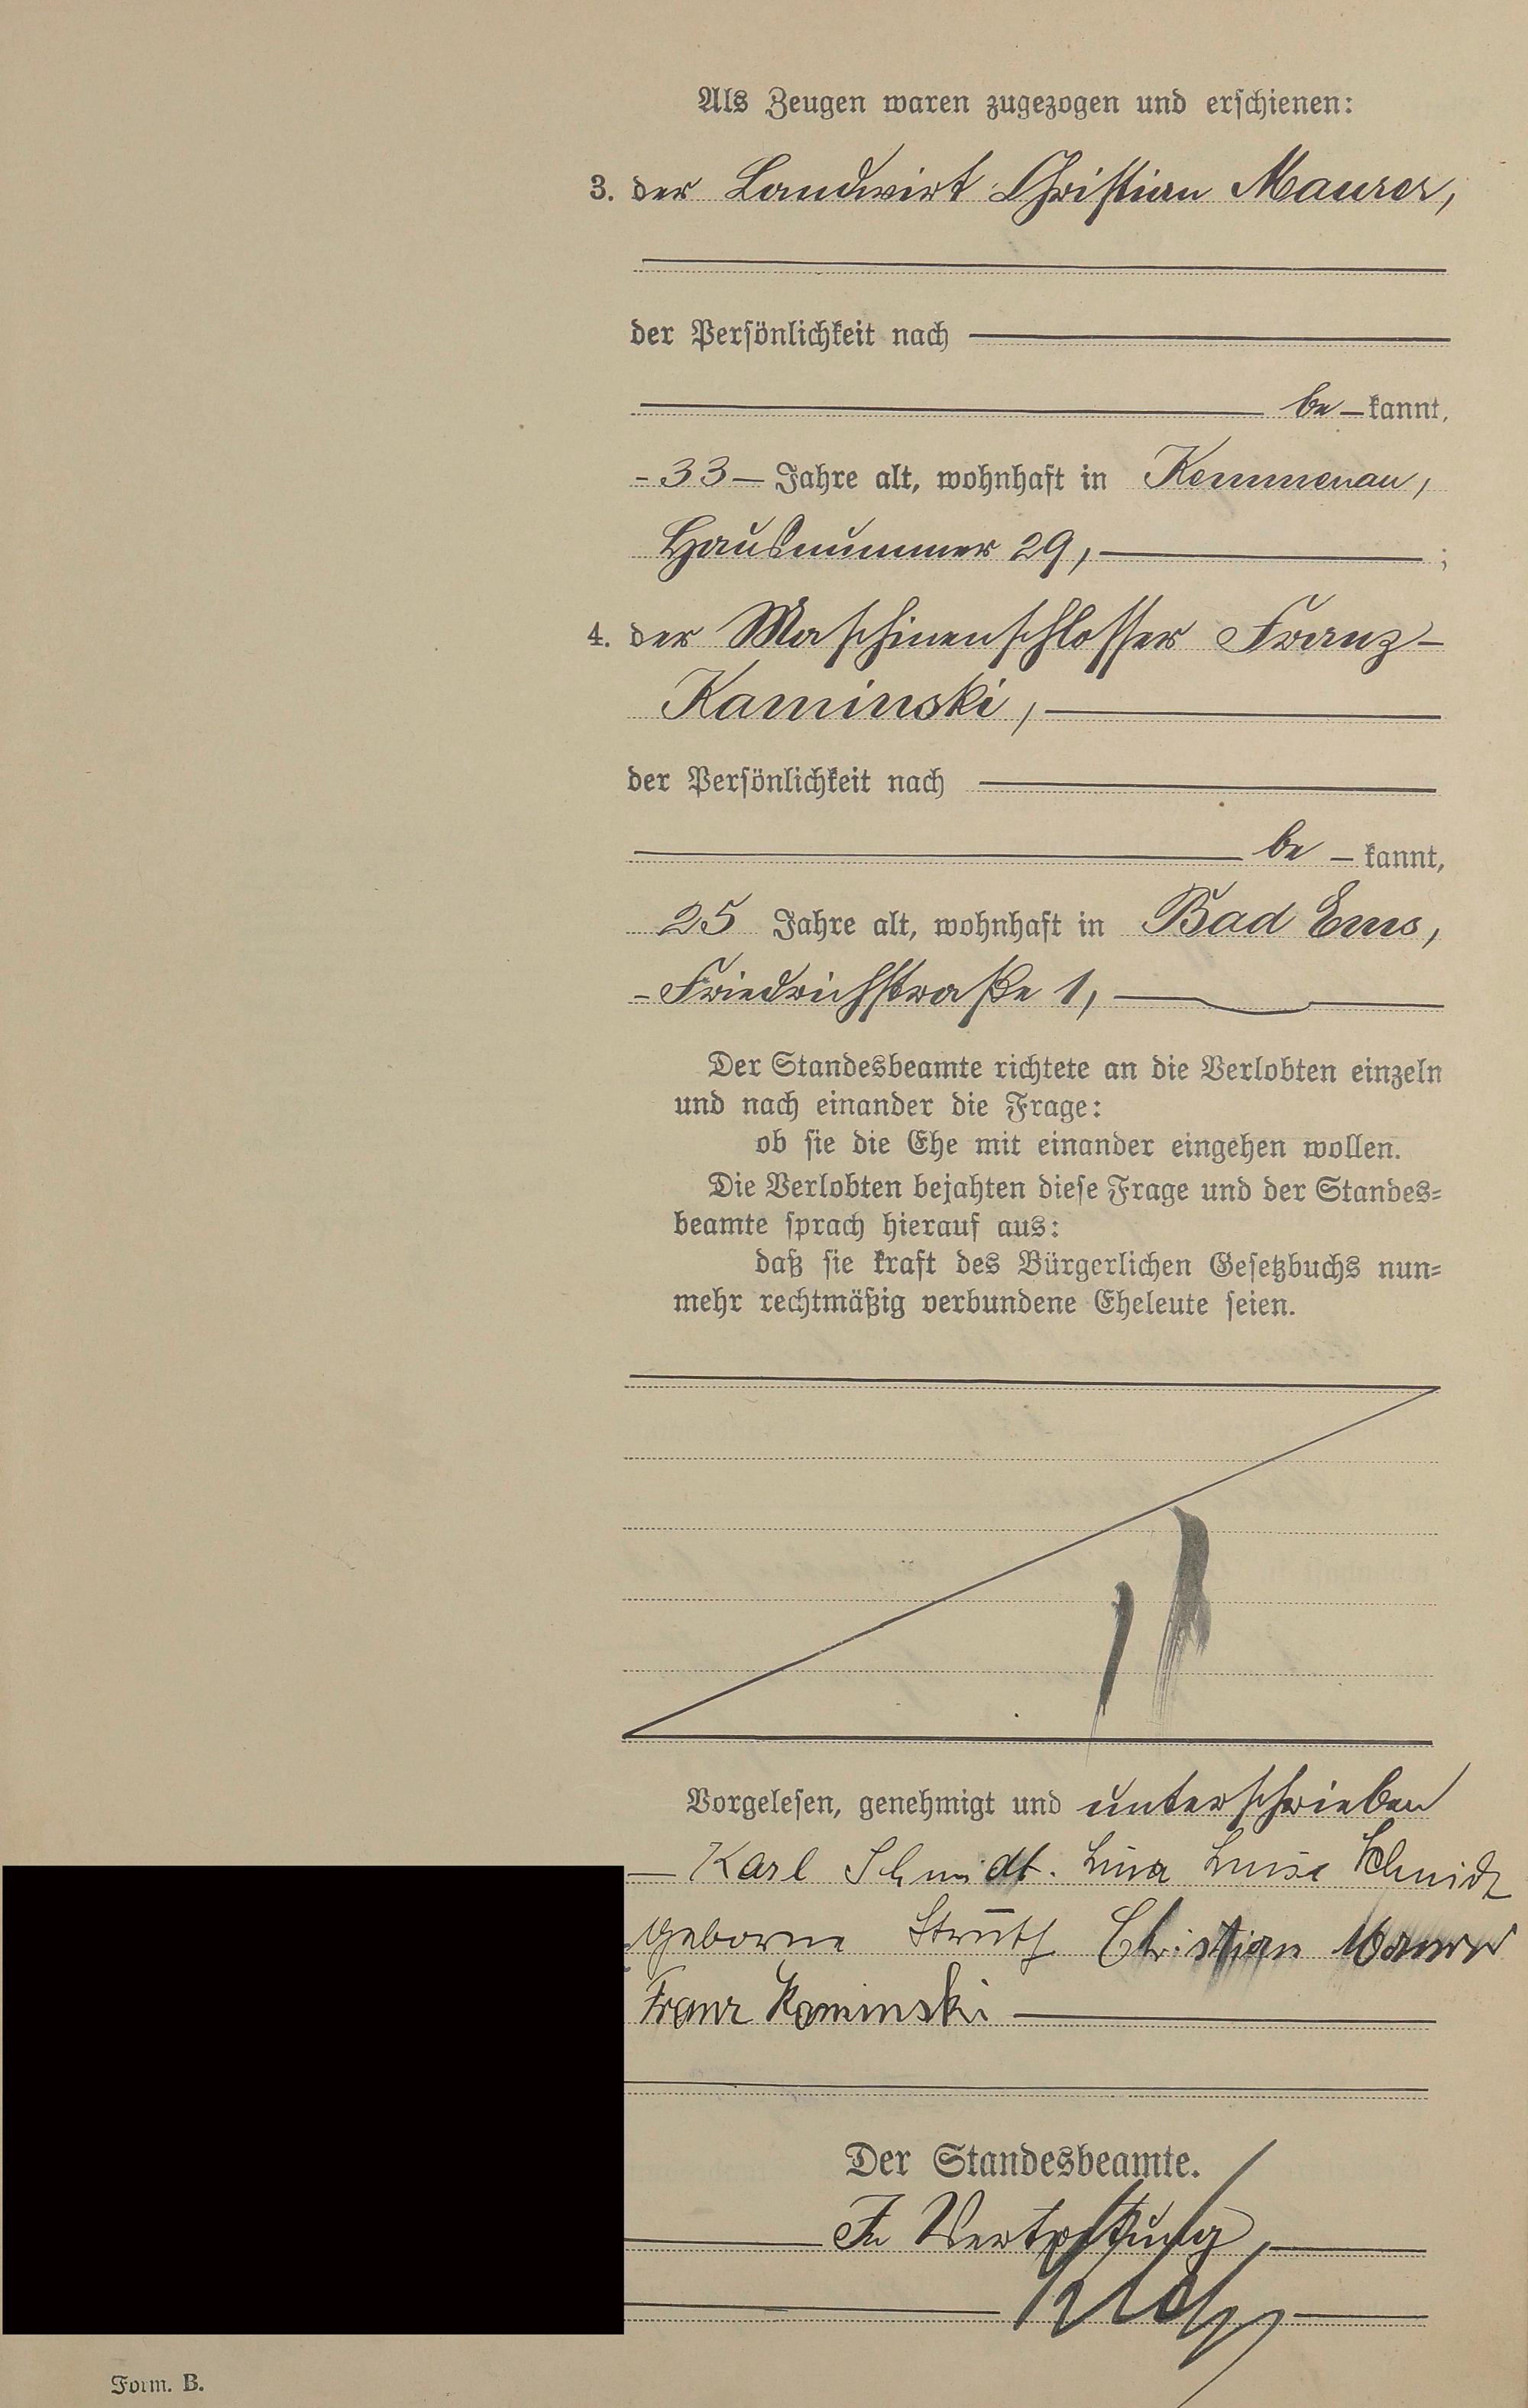 Als Zeugen waren zugezogen und erschienen:
3. der Landwirt Christian Maurer,
der Persönlichkeit nach
be – kannt,
- 33 – Jahre alt, wohnhaft in Kemmenau,
Hausnummer 29, ;
4. der Maschinenschlosser Franz –
Kaminski,
der Persönlichkeit nach
be – kannt,
25 Jahre alt, wohnhaft in Bad Ems,
- Friedrichstraße 1,
Der Standesbeamte richtete an die Verlobten einzeln
und nach einander die Frage:
ob sie die Ehe mit einander eingehen wollen.
Die Verlobten bejahten diese Frage und der Standes=
beamte sprach hierauf aus:
daß sie kraft des Bürgerlichen Gesetzbuchs nun=
mehr rechtmäßig verbundene Eheleute seien.
Vorgelesen, genehmigt und unterschrieben
— Karl Schmidt. Lina Luise Schmidt
geborne Struth Christian Maurer
Franz Kaminski
Der Standesbeamte.
In Vertretung
Form. B.